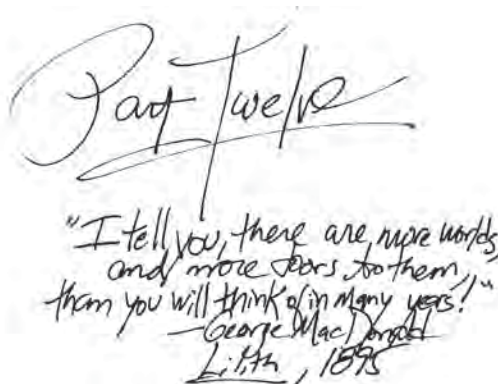 Part Twelve
"I tell you, there are more worlds,
and more doors to them,
than you will think of in many years!"
—George MacDonald
Lilith, 1895